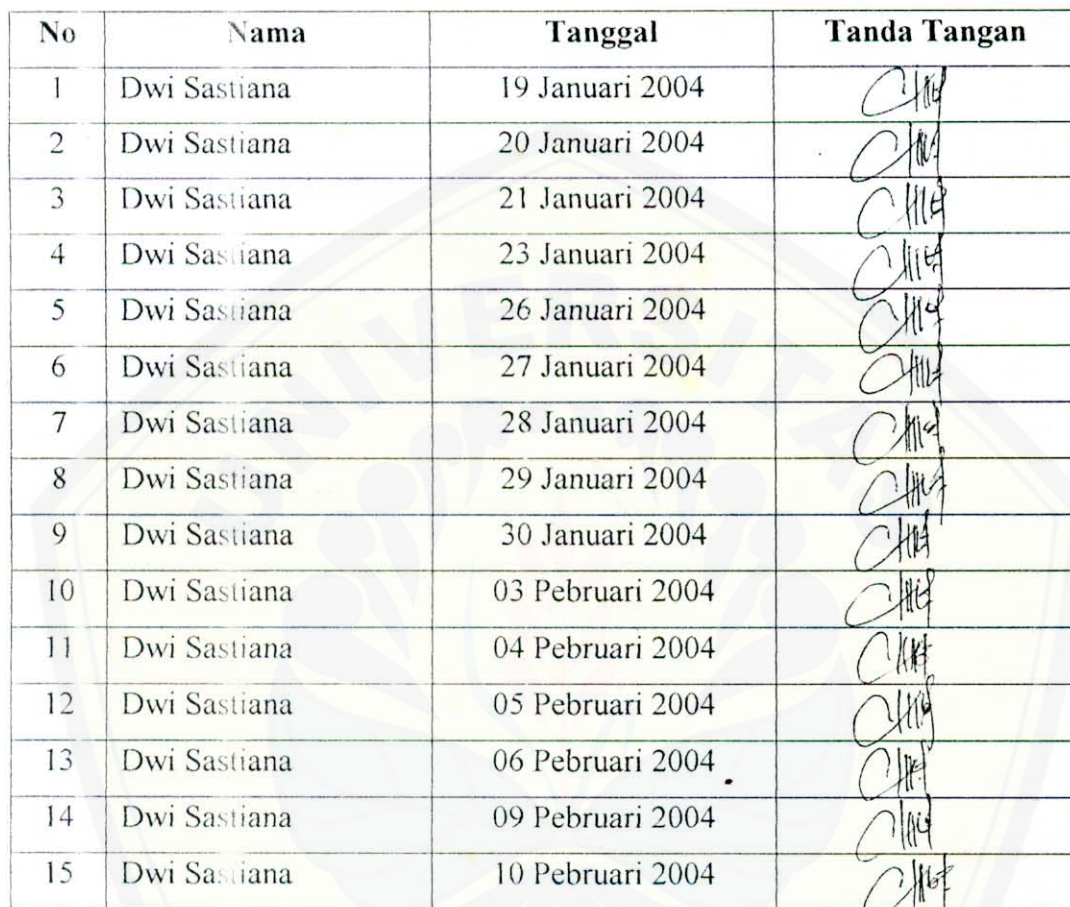 No Nama Tanggal Tanda Tangan
1 Dwi Sastiana 19 Januari 2004
2 Dwi Sastiana 20 Januari 2004
3 Dwi Sastiana 21 Januari 2004
4 Dwi Sastiana 23 Januari 2004
5 Dwi Sastiana 26 Januari 2004
6 Dwi Sastiana 27 Januari 2004
7 Dwi Sastiana 28 Januari 2004
8 Dwi Sastiana 29 Januari 2004
9 Dwi Sastiana 30 Januari 2004
10 Dwi Sastiana 03 Pebruari 2004
11 Dwi Sastiana 04 Pebruari 2004
12 Dwi Sastiana 05 Pebruari 2004
13 Dwi Sastiana 06 Pebruari 2004
14 Dwi Sastiana 09 Pebruari 2004
15 Dwi Sastiana 10 Pebruari 2004
UNIVERSITAS